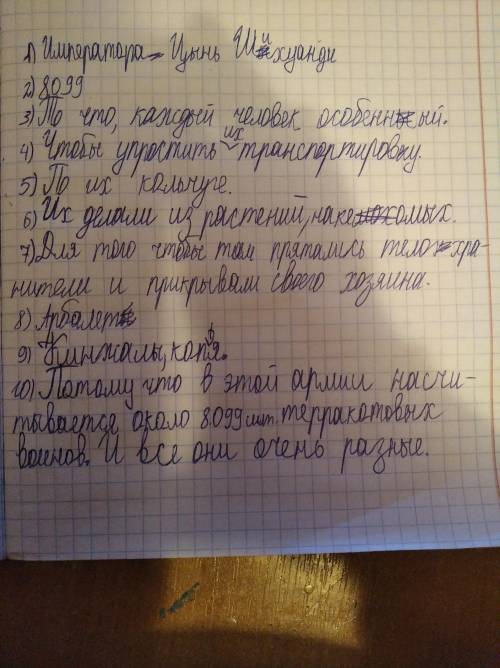 1) Императора - Цынь Шихуанди
2) 8099
3) То что, каждый человек особенный.
4) Чтобы упростить их транспортировку.
5) По их кольчуге.
6) Их делали из растений, насекомых.
7) Для того чтобы там прятались телохра-
нители и прикрывали своего хозяина.
8) Арбалет
9) Кинжалы, копья.
10) Потому что в этой армии насчи-
тывается около 8.099 шт. терракотовых
воинов. И все они очень разные.